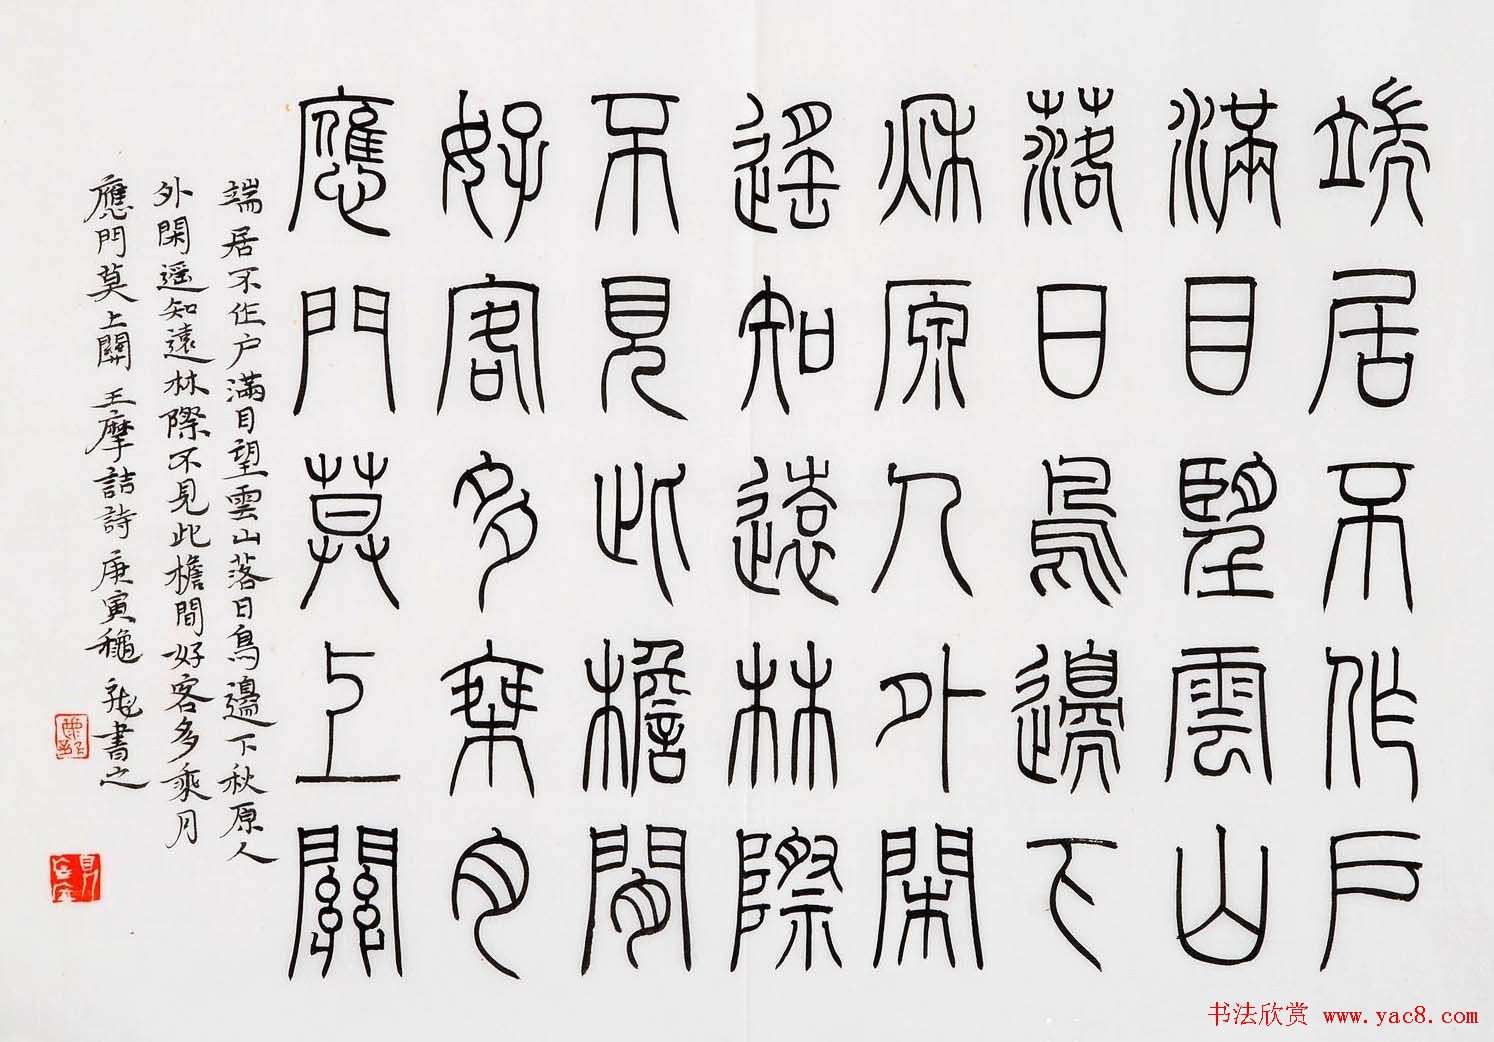 端居不作户
滿目望雲山
落日鳥邊下
秋原人外閑
遙知遠林際
不見此檐間
好客多乘月
應門莫上關
端居不作户滿目望雲山落日鳥邊下秋原人
外閑遥知遠林際不見此檐間好客多乘月
應門莫上關 王摩詰詩 庚寅穐 書之
书法欣赏 www.yac8.com